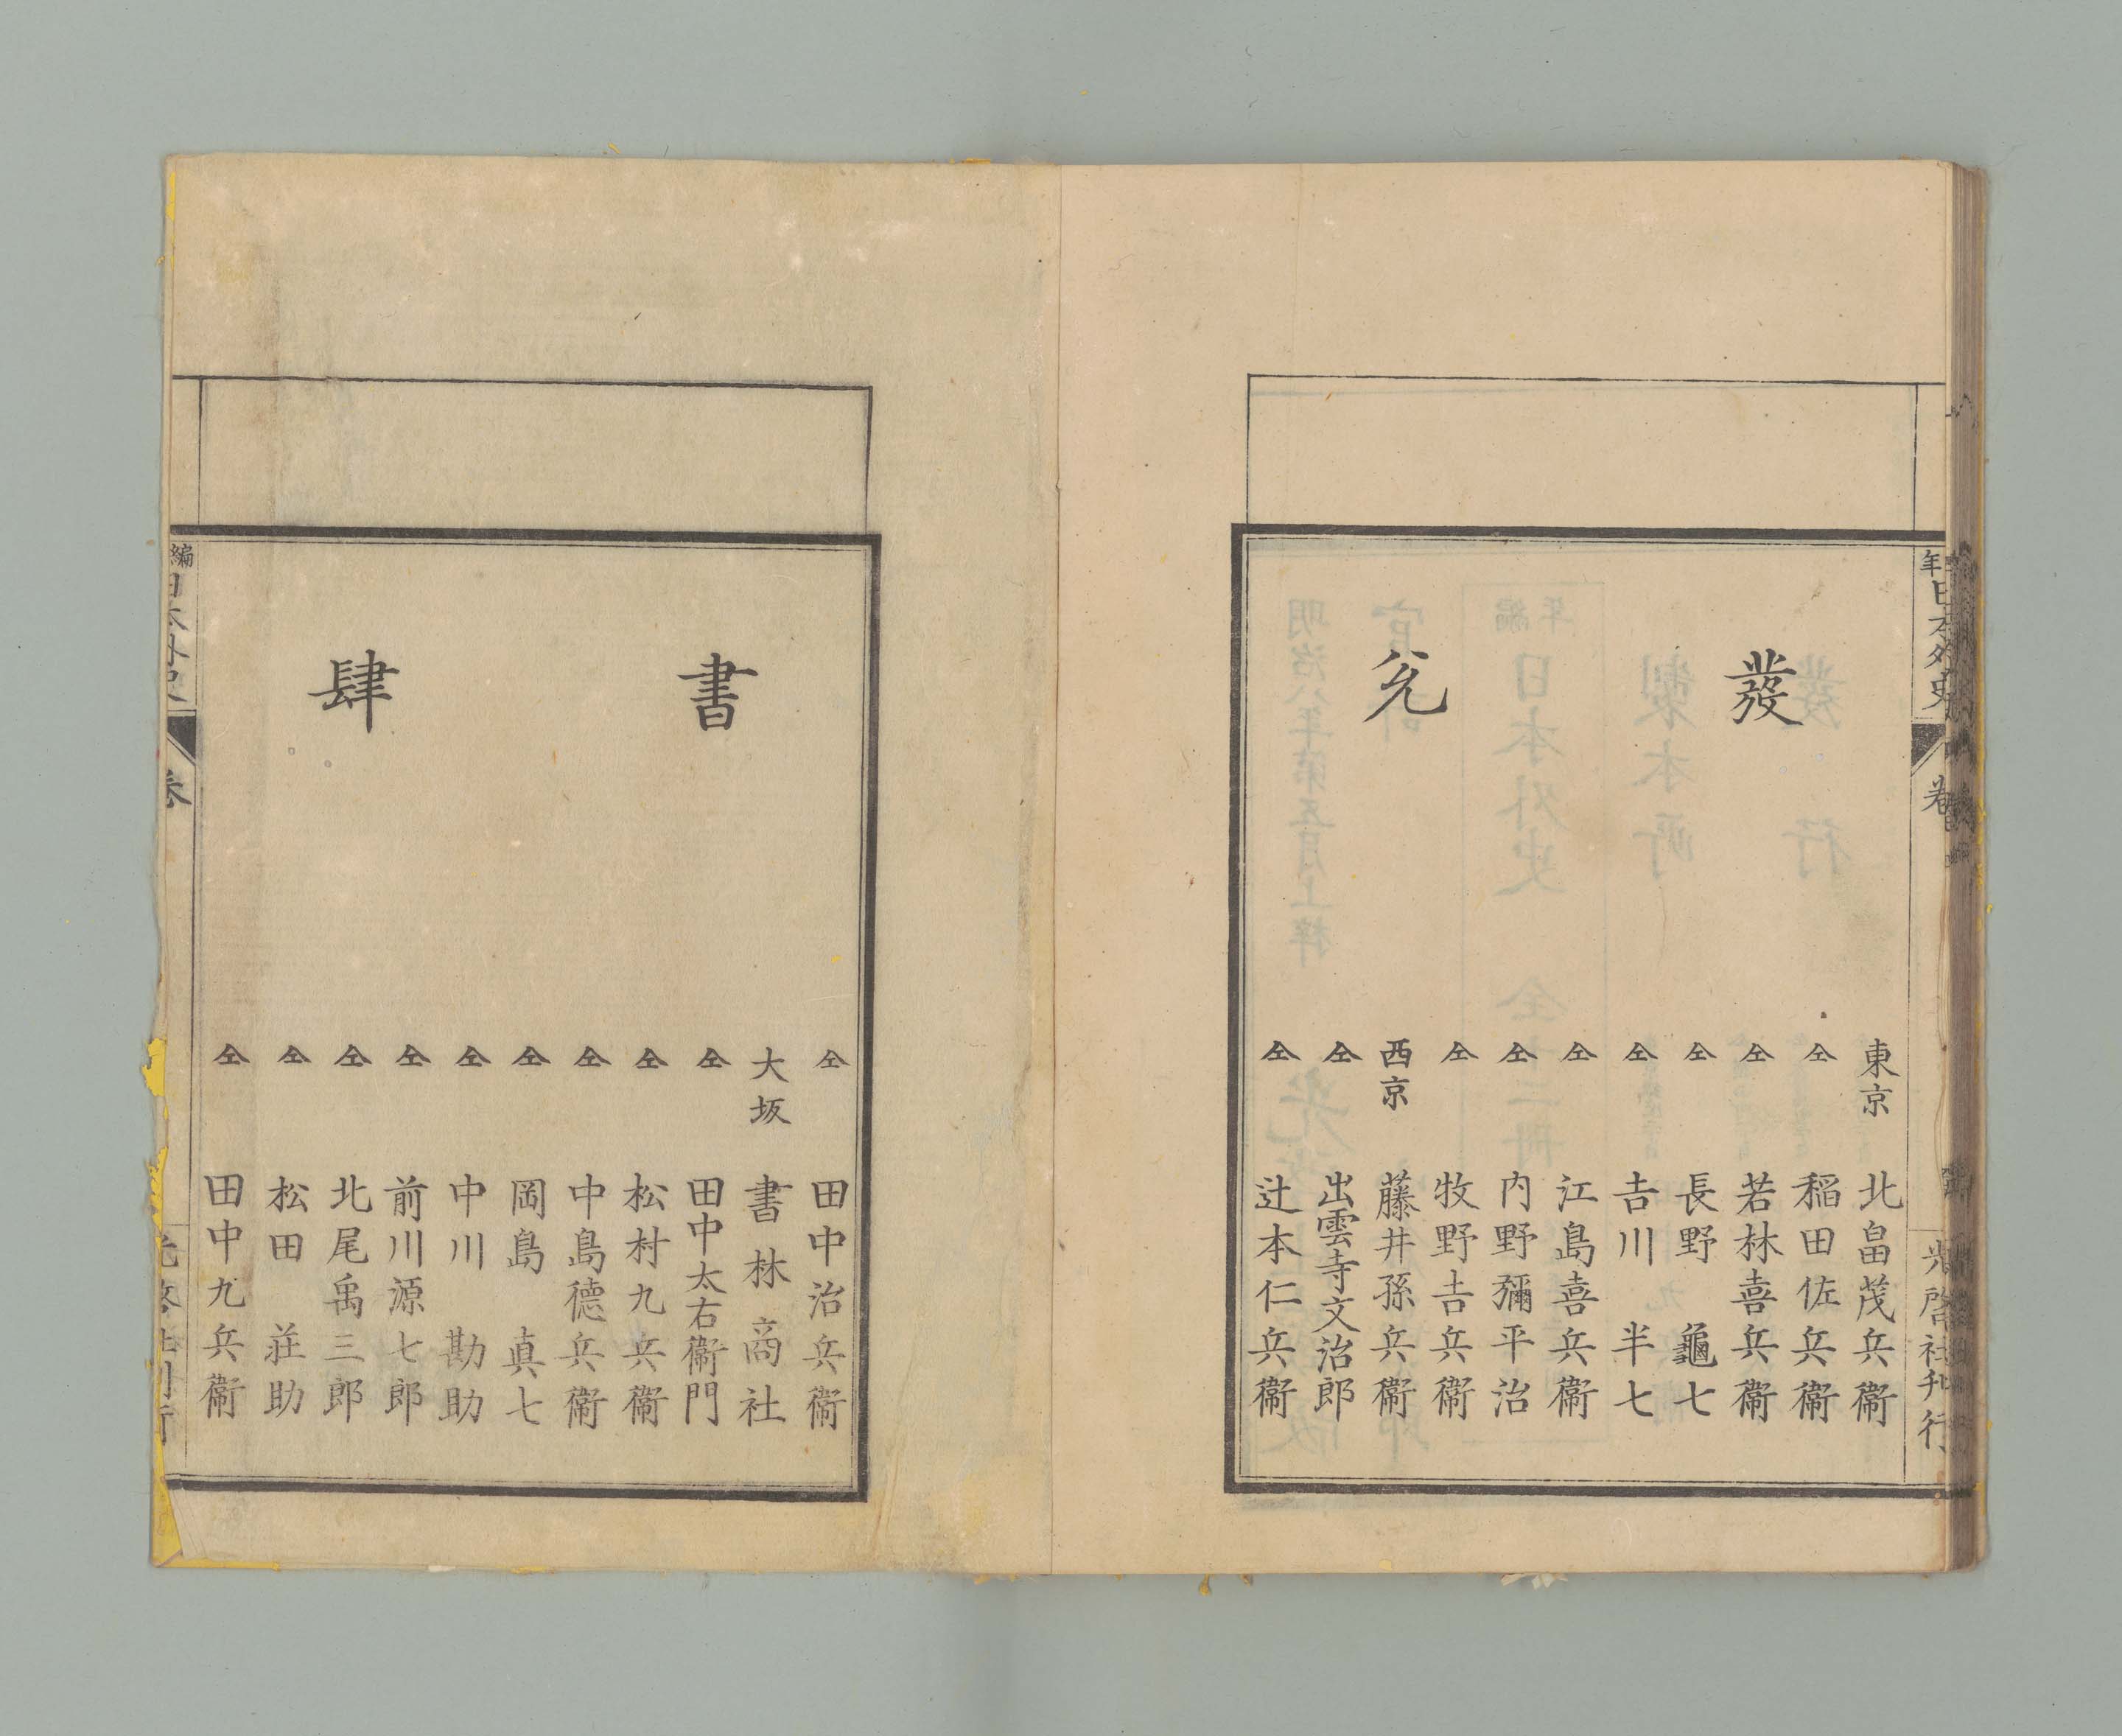 發兌
東京 北畠茂兵衞
仝 稲田佐兵衞
仝 若林喜兵衞
仝 長野龜七
仝 吉川半七
仝 江島喜兵衞
仝 内野彌平治
仝 牧野吉兵衞
西京 藤井孫兵衞
仝 出雲寺文治郎
仝 辻本仁兵衞
書肆
仝 田中治兵衞
大坂 書林商社
仝 田中太右衞門
仝 松村九兵衞
仝 中島德兵衞
仝 岡島真七
仝 中川勘助
仝 前川源七郎
仝 北尾禹三郎
仝 松田莊助
仝 田中九兵衞
年 日本外史 卷 光啓社刊行
編 日本外史 卷